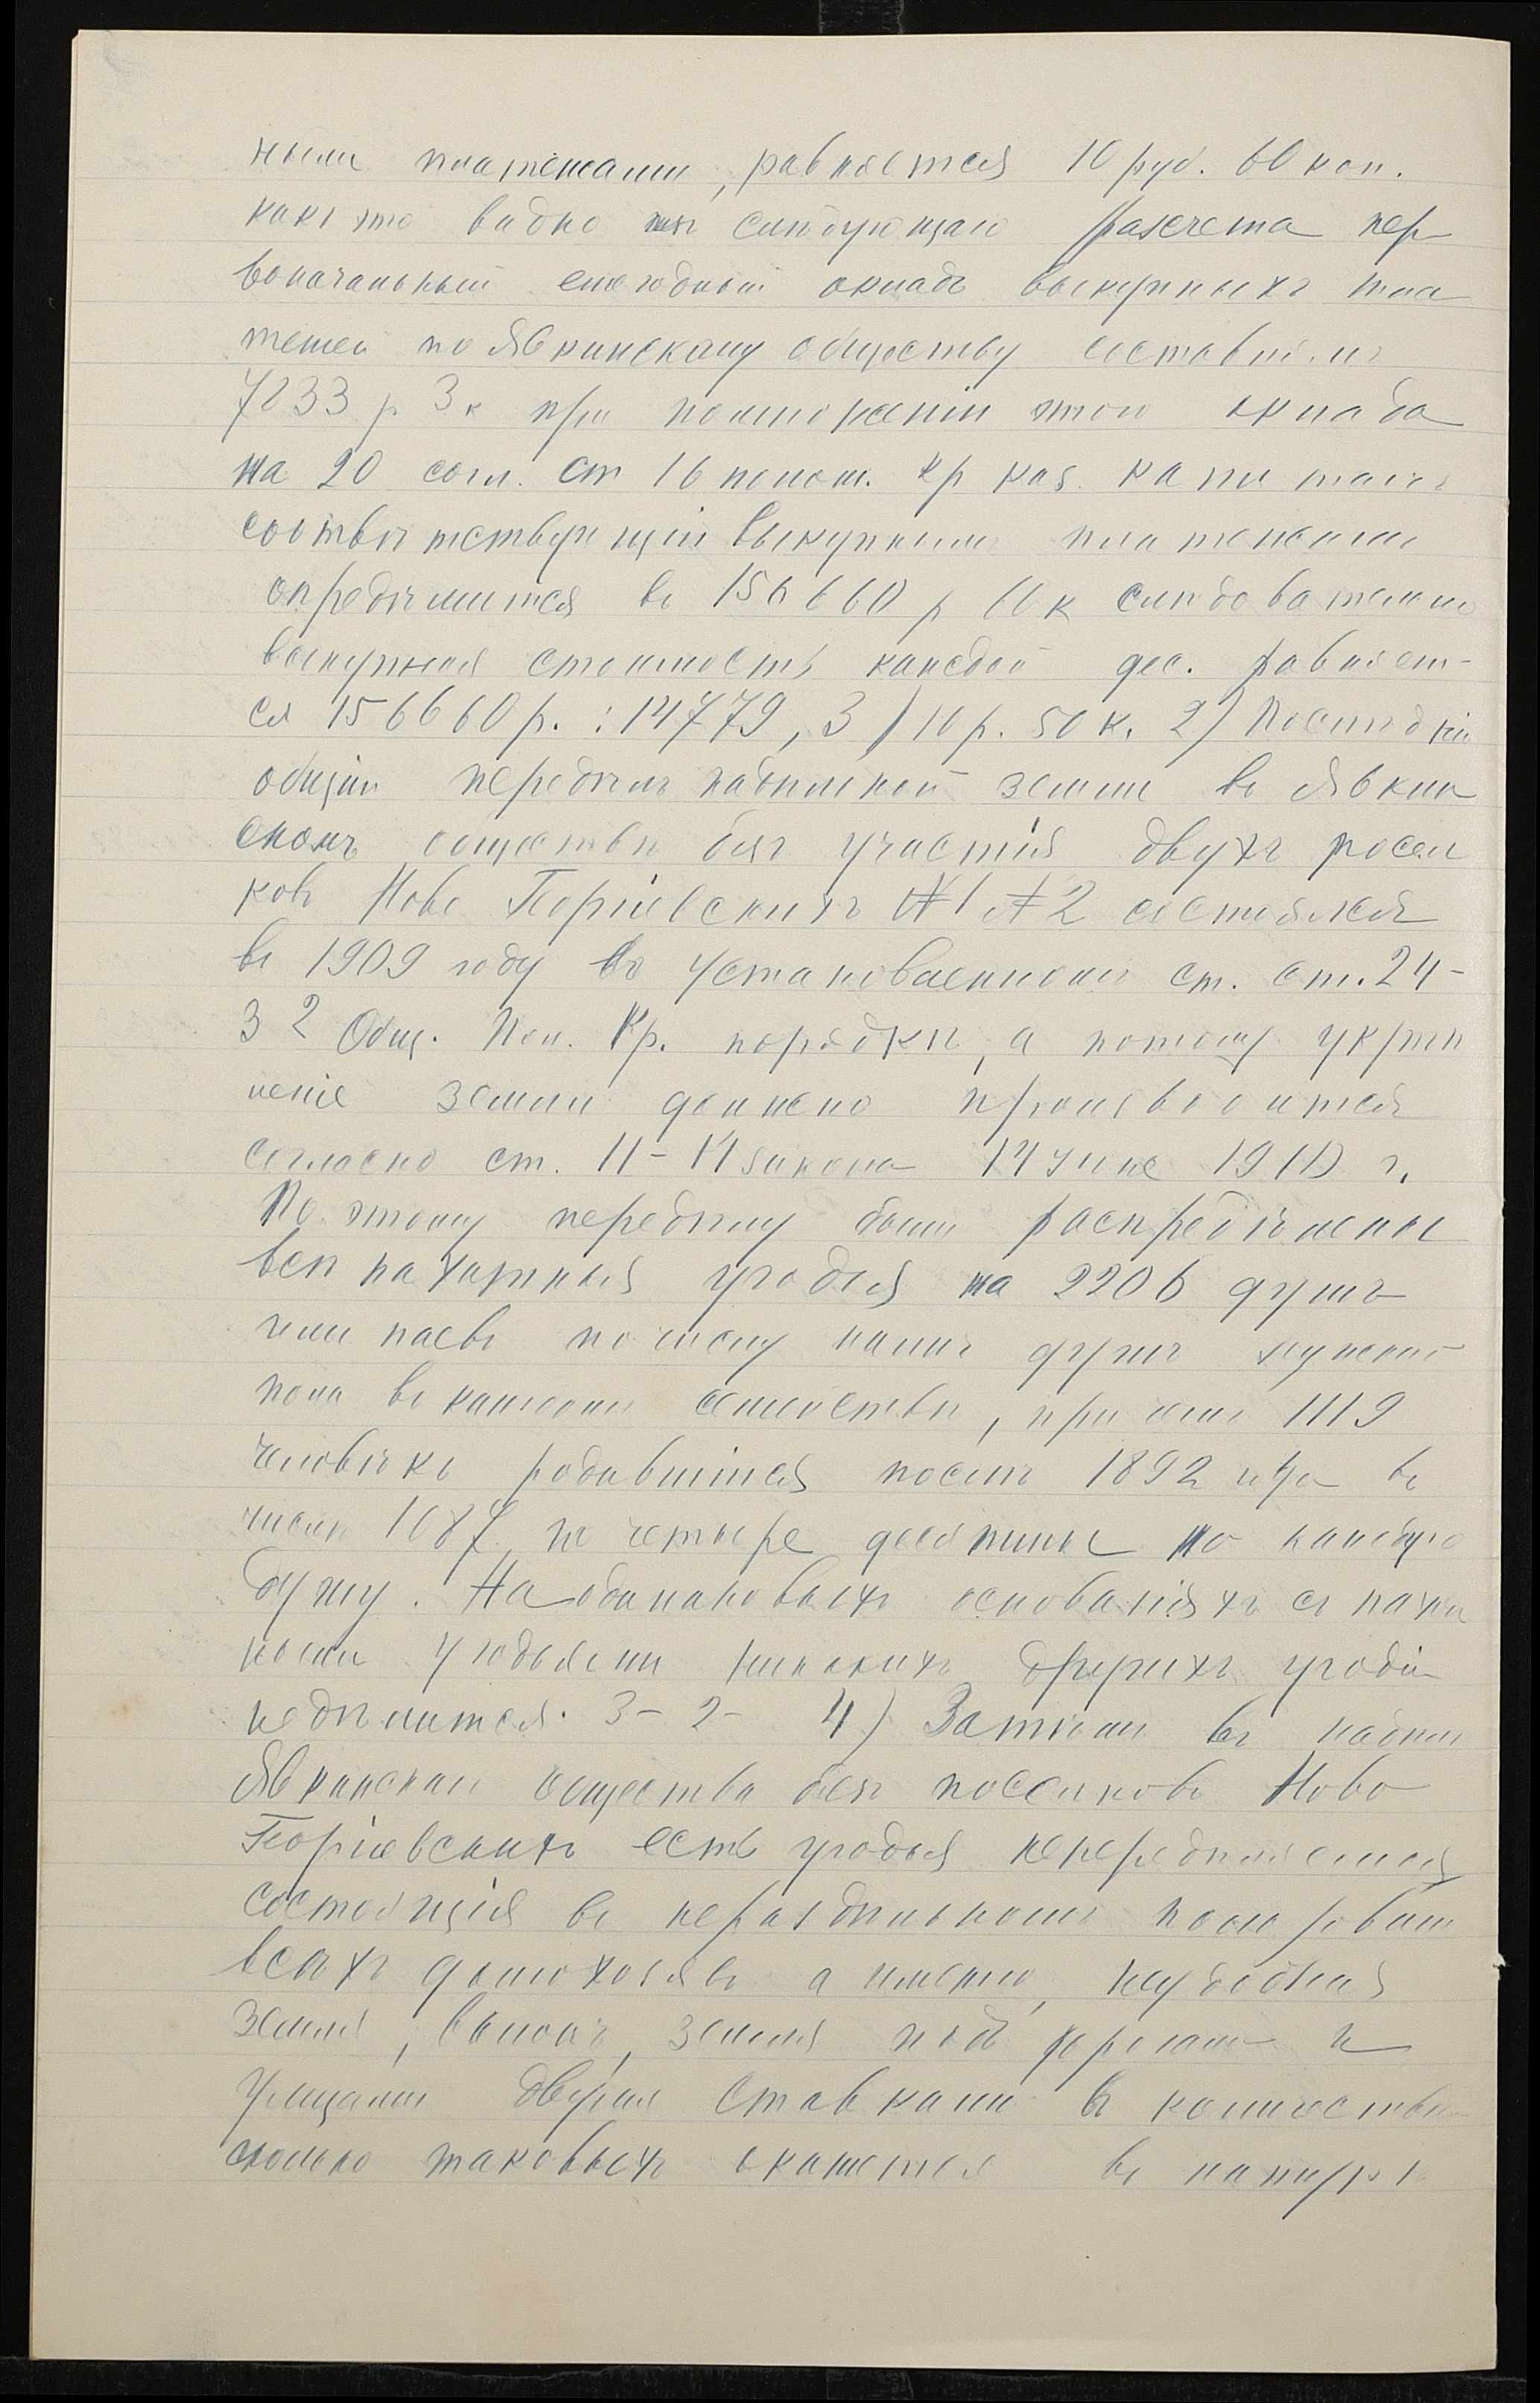 ными платежами, равняется 10 руб. 60 коп.
какъ это видно изъ слѣдующаго разсчета пер
воначальный ежегодный окладъ выкупныхъ пла
тежей по Явкинскому обществу составлялъ
7833 р 3 к при помноженіи этого оклада
на 20 согл. ст 16 полож. кр каз. капиталъ
соотвѣтствующій выкупнымъ платежамъ
опредѣлится въ 156660 р 60 к слѣдовательно
выкупная стоимость каждой дес. равняет-
ся 156660 р. : 14779, 3 / 10 р. 50 к. 2) Послѣдній
общій передѣлъ надѣльной земли въ Явкин
скомъ обществѣ безъ участія двухъ посел
ковъ Ново Георгіевскихъ № 1 и № 2 состоялся
въ 1909 году въ установленномъ ст. ст. 24-
32 Общ. Пол. Кр. порядкѣ, а потому укрѣп
леніе земли должно производится
согласно ст. 11-14 закона 14 Іюне 1910 г.
По этому передѣлу были распредѣлены
всѣ пахатныя угодья на 2206 душъ
или паевъ по числу налич душъ мужского
пола въ каждомъ семействѣ, при чемъ 1119
человѣкъ родившіися послѣ 1892 года въ
числѣ 1087 по четыре десятины на каждую
душу. На одинаковыхъ основаніяхъ съ пахат
ными угодьями никакихъ другихъ угодій
недѣлится. 3- 2- 4) Затѣмъ въ надѣлѣ
Явкинскаго общества безъ поселковъ Ново
Георгіевскихъ есть угодья непередѣляемыя
состоящія въ нераздѣльномъ пользованіи
всѣхъ домохозяевъ а именно, неудобная
земля, выгонъ, земля подъ дорогами и
улицами двумя ставками въ количествѣ
сколько таковыхъ окажется въ натурѣ